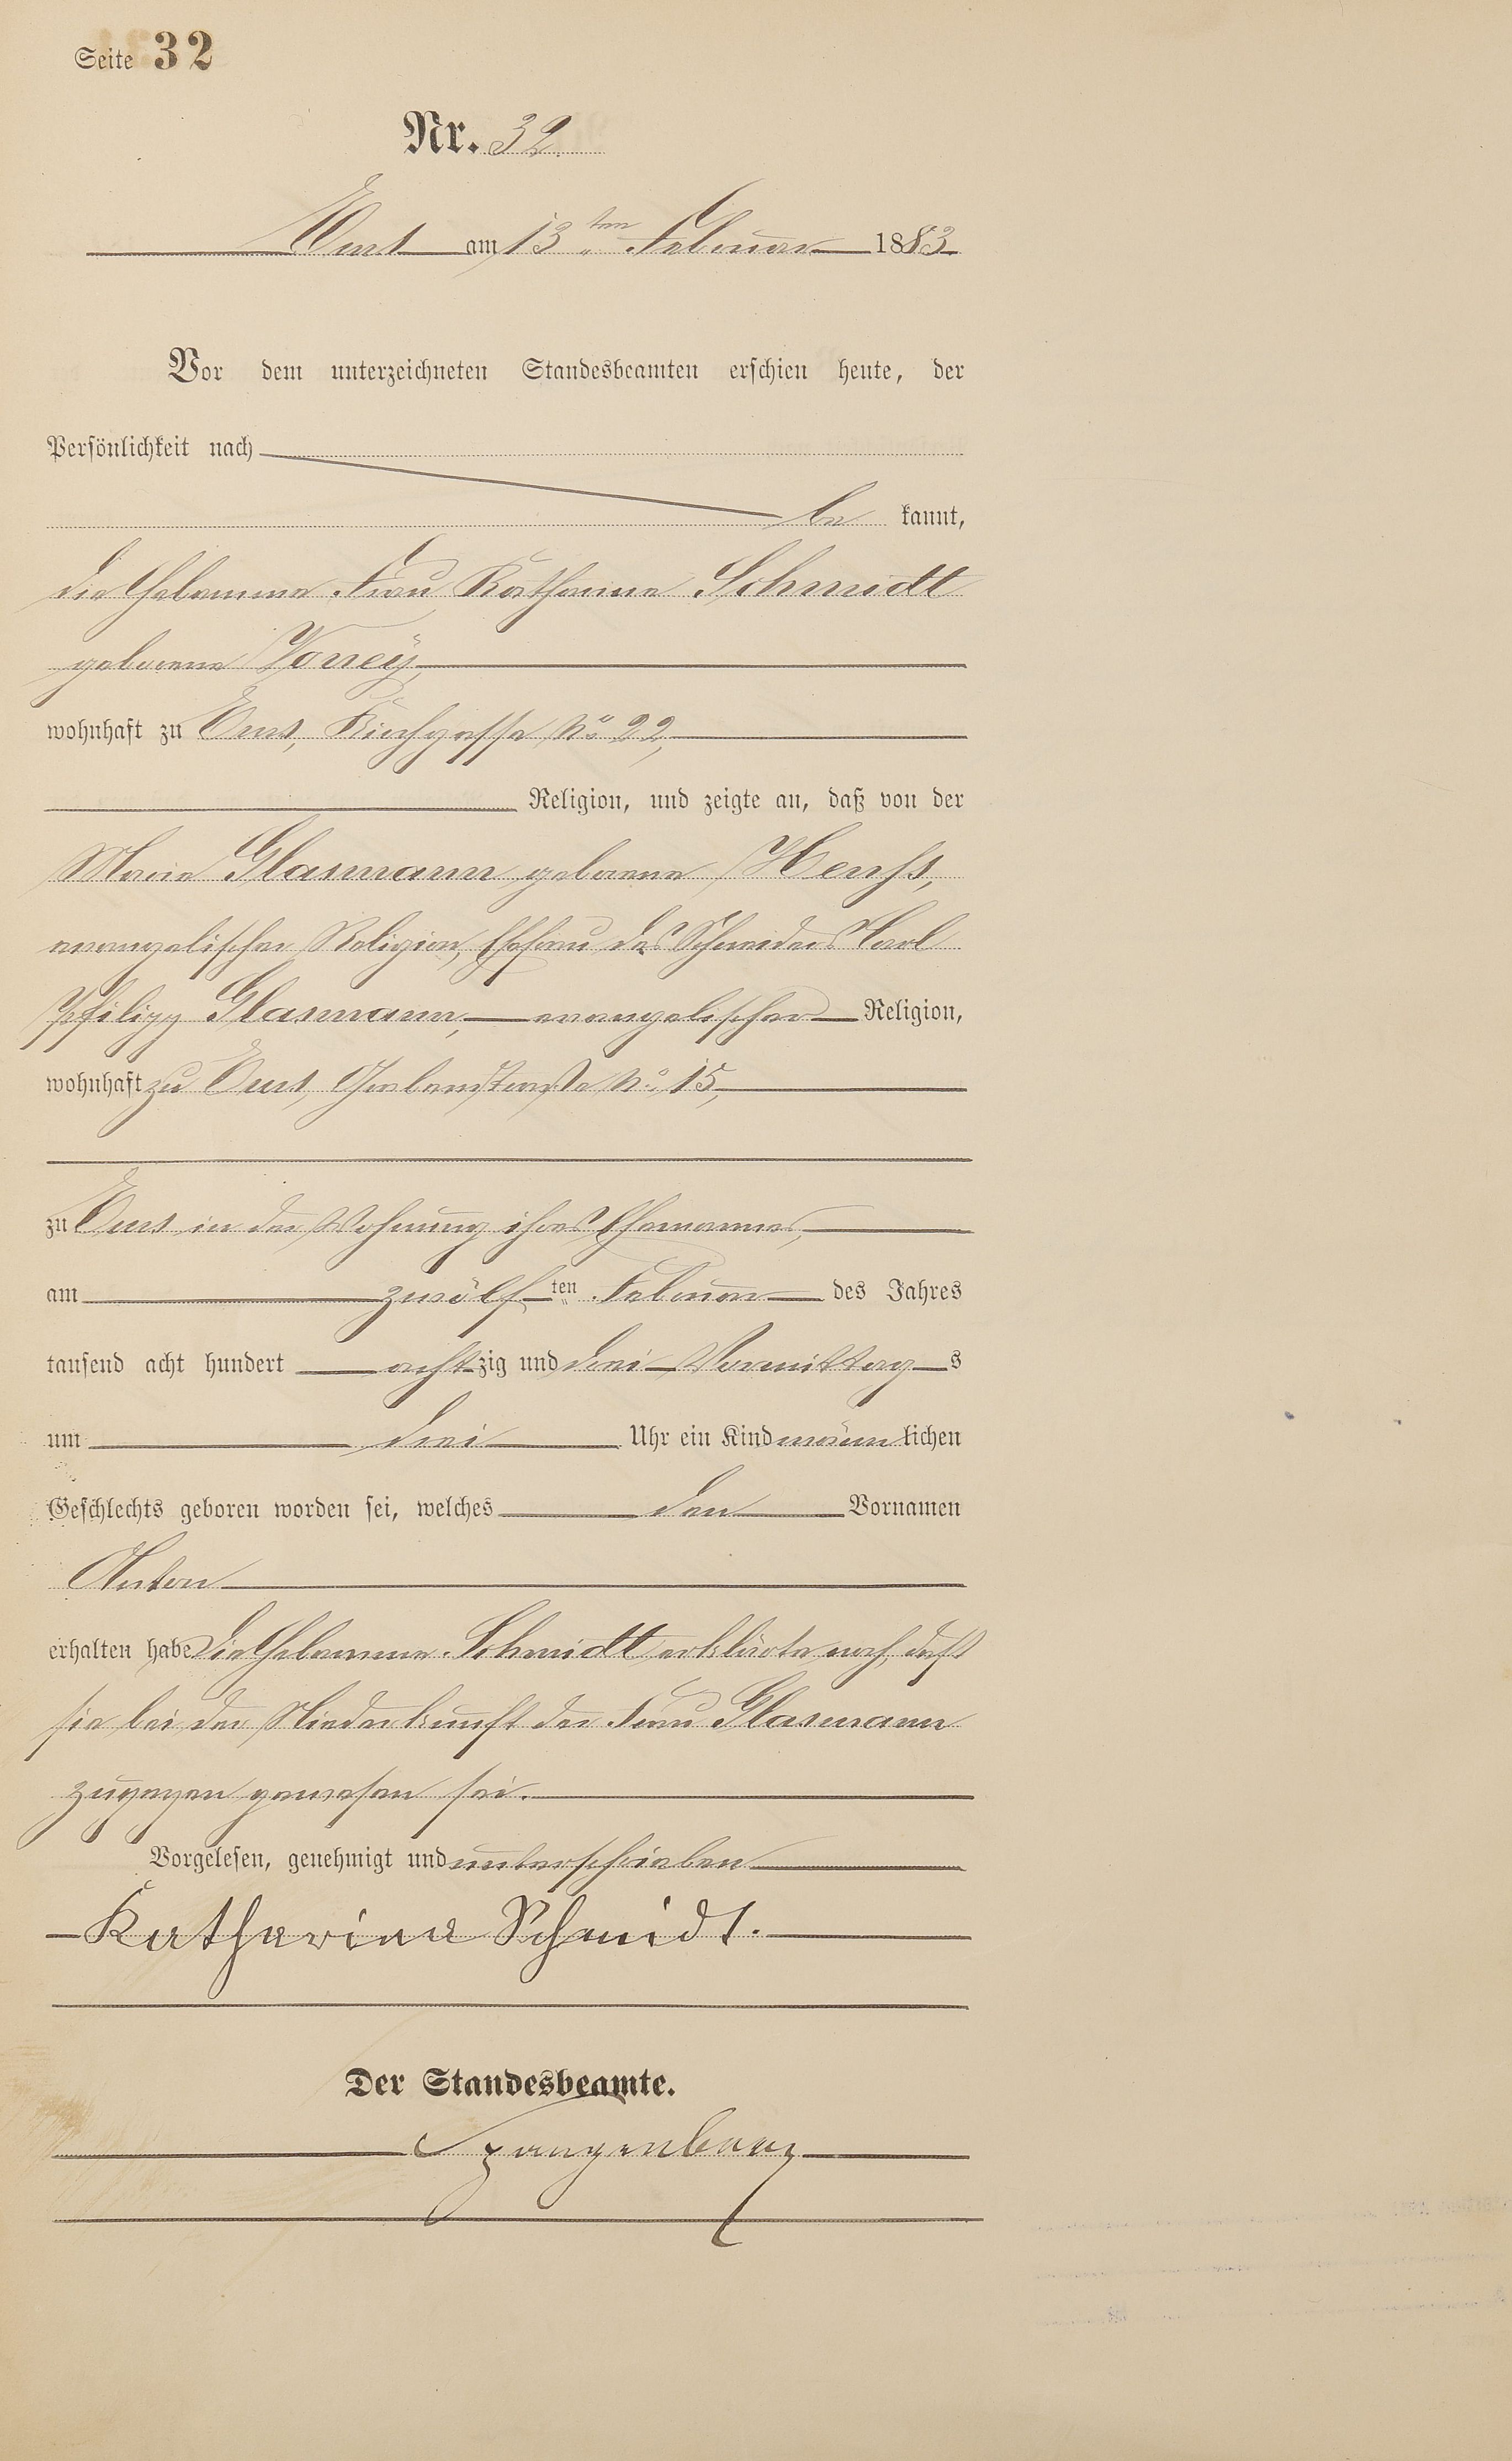 Seite 32
Nr. 32.
Ems am 13ten Februar 1883
Vor dem unterzeichneten Standesbeamten erschien heute, der
Persönlichkeit nach
be kannt,
die Hebamme Frau Katharine Schmidt
geborene Vorreÿ,
wohnhaft zu Ems, Kirchgasse No 22,
Religion, und zeigte an, daß von der
Marie Glasmann geborene Henß,
evangelischer Religion, Ehefrau des Schneiders Karl
Philipp Glasmann, evangelischer Religion,
wohnhaft zu Ems, Grabenstraße No 15,
zu Ems in der Wohnung ihres Ehemannes,
am zwölften Februar des Jahres
tausend acht hundert achtzig und drei Vormittags
um drei Uhr ein Kind männlichen
Geschlechts geboren worden sei, welches den Vornamen
Anton
erhalten habe Die Hebamme Schmidt erklärte noch, daß
sie bei der Niederkunft der Frau Glasmann
zugegen gewesen sei.
Vorgelesen, genehmigt und unterschrieben
Katharina Schmidt.
Der Standesbeamte.
Spangenberg